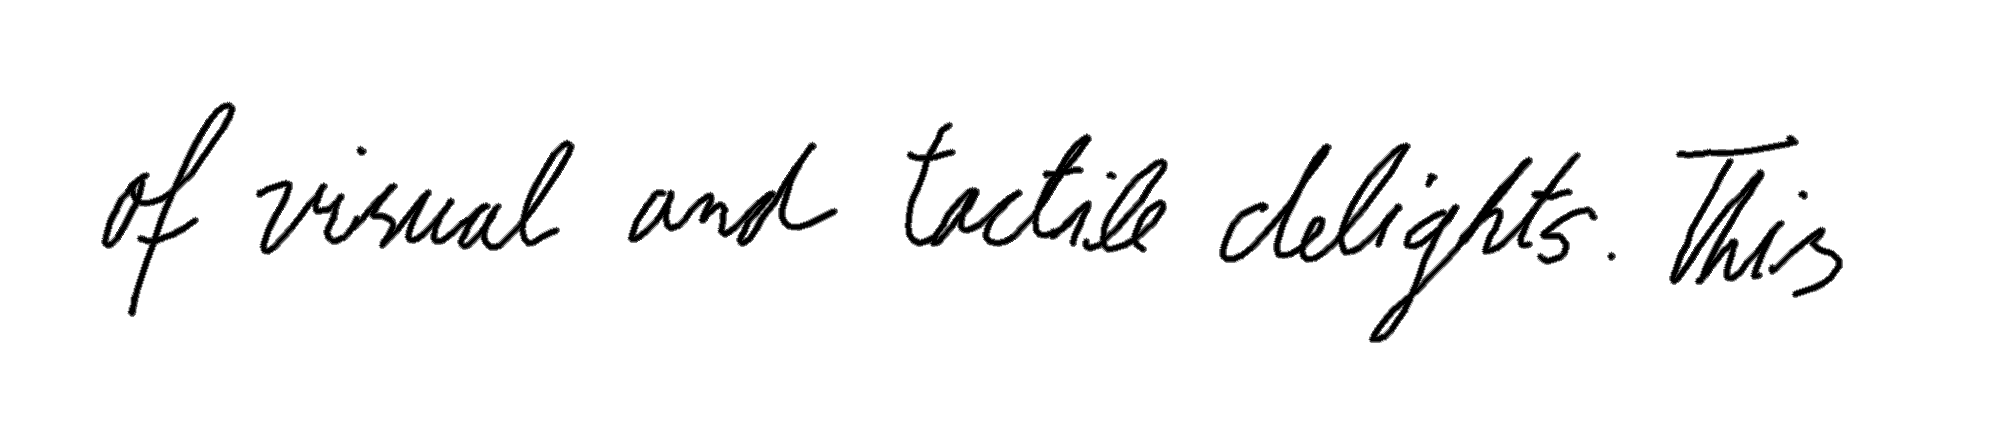 of visual and tactile delights. This